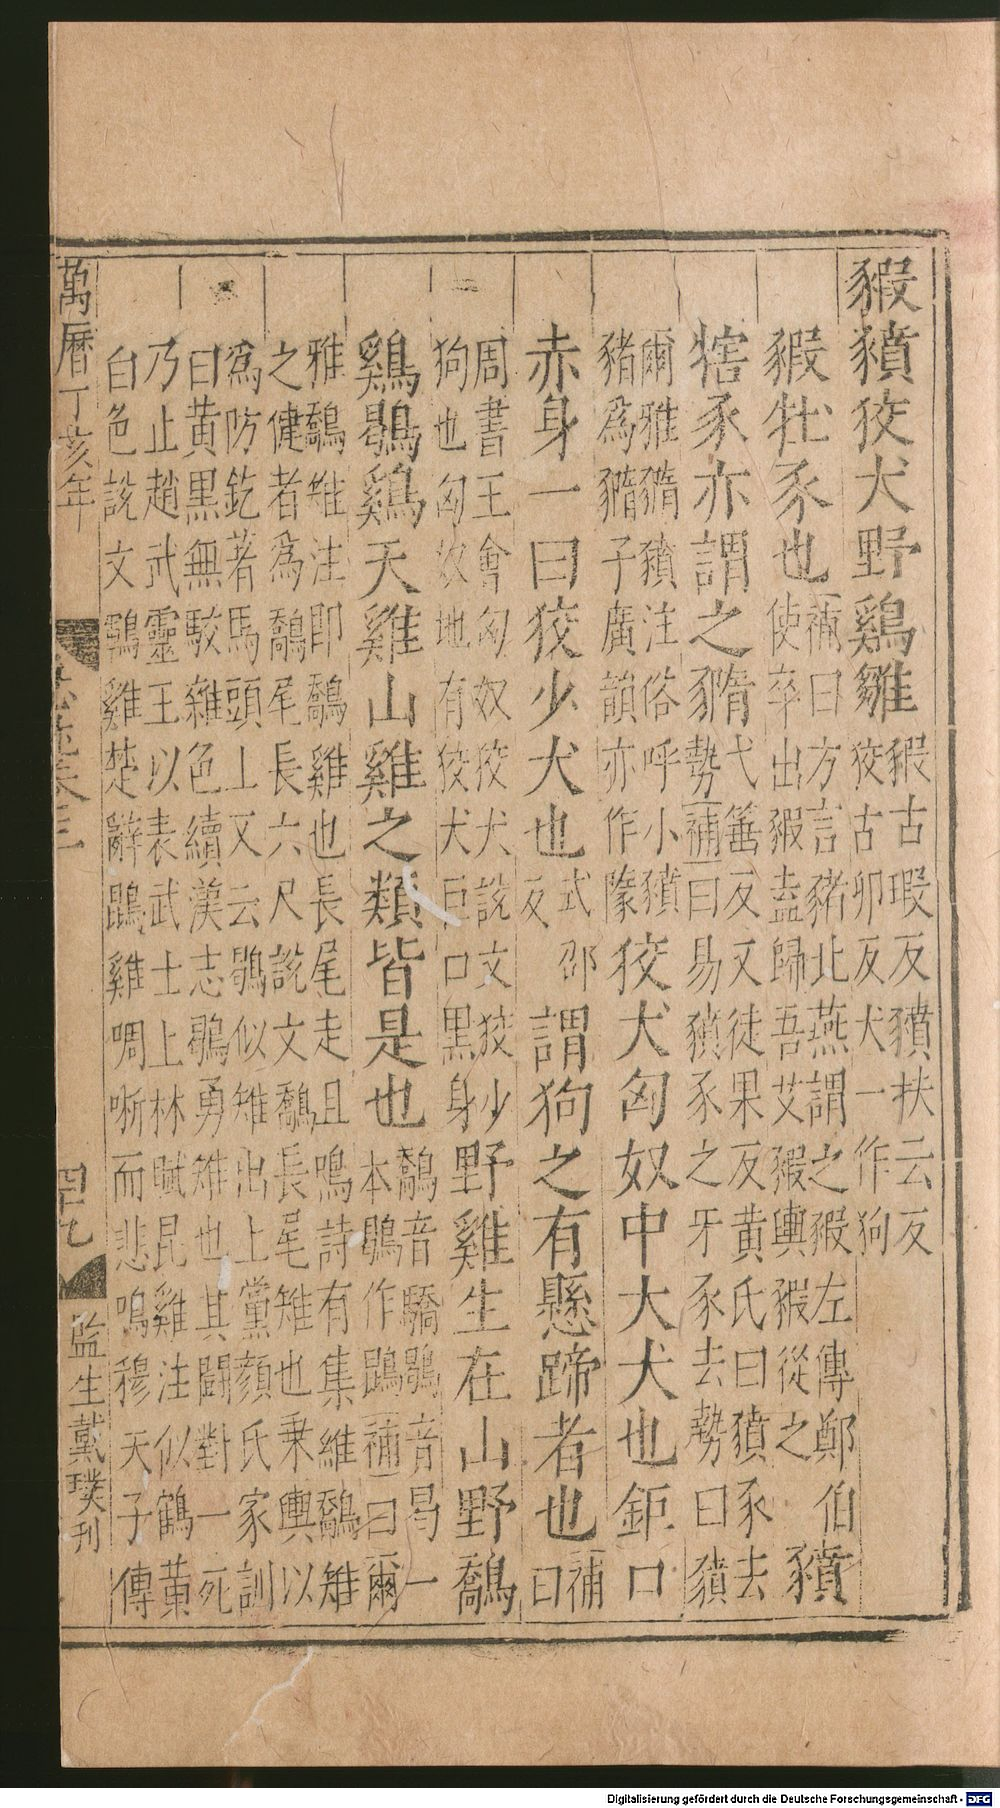 豭豶狡犬野鷄雛豭古瑕反豶扶云反
狡古卯反犬一作狗
豭牡豕也補曰方言豬北燕謂之豭左傳鄭伯
使卒出豭盍歸吾艾豭輿豭從之豶
犗豕亦謂之㹔弋箠反又徒果反黄氏曰豶豕去
勢補曰易豶豕之牙豕去勢曰豶
爾雅㹔豶注俗呼小豶
豬爲㹔子廣韻亦作㹔狡犬匈奴中大犬也鉅口
赤身一曰狡少犬也式邵
反謂狗之有懸蹄者也補
曰
周書王會匈奴狡犬說文狡少
狗也匈奴地有狡犬巨口黑身野雞生在山野鷮
鷄鶡鷄天雞山雞之類皆是也鷮音驕鶡音曷一
本鶡作鶤補曰爾
雅鷮雉注即鷮雞也長尾走且鳴詩有集維鷮雉
之健者爲鷮尾長六尺說文鷮長尾雉也乗輿以
爲防釳著馬頭上又云鶡似雉出上黨顔氏家訓
曰黄黒無駮雜色續漢志鶡勇雉也其闘對一死
乃止趙武靈王以表武士上林賦昆雞注似鶴黄
白色說文鶤雞楚辭鵾雞啁哳而悲鳴穆天子傳
萬曆丁亥年
四十九
監生戴璞刊
Digitalisierung gefördert durch die Deutsche Forschungsgemeinschaft - DFG